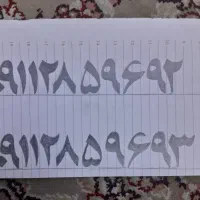 ۹۱۱۲۸۵۹۶۹۲
۹۱۱۲۸۵۹۶۹۳